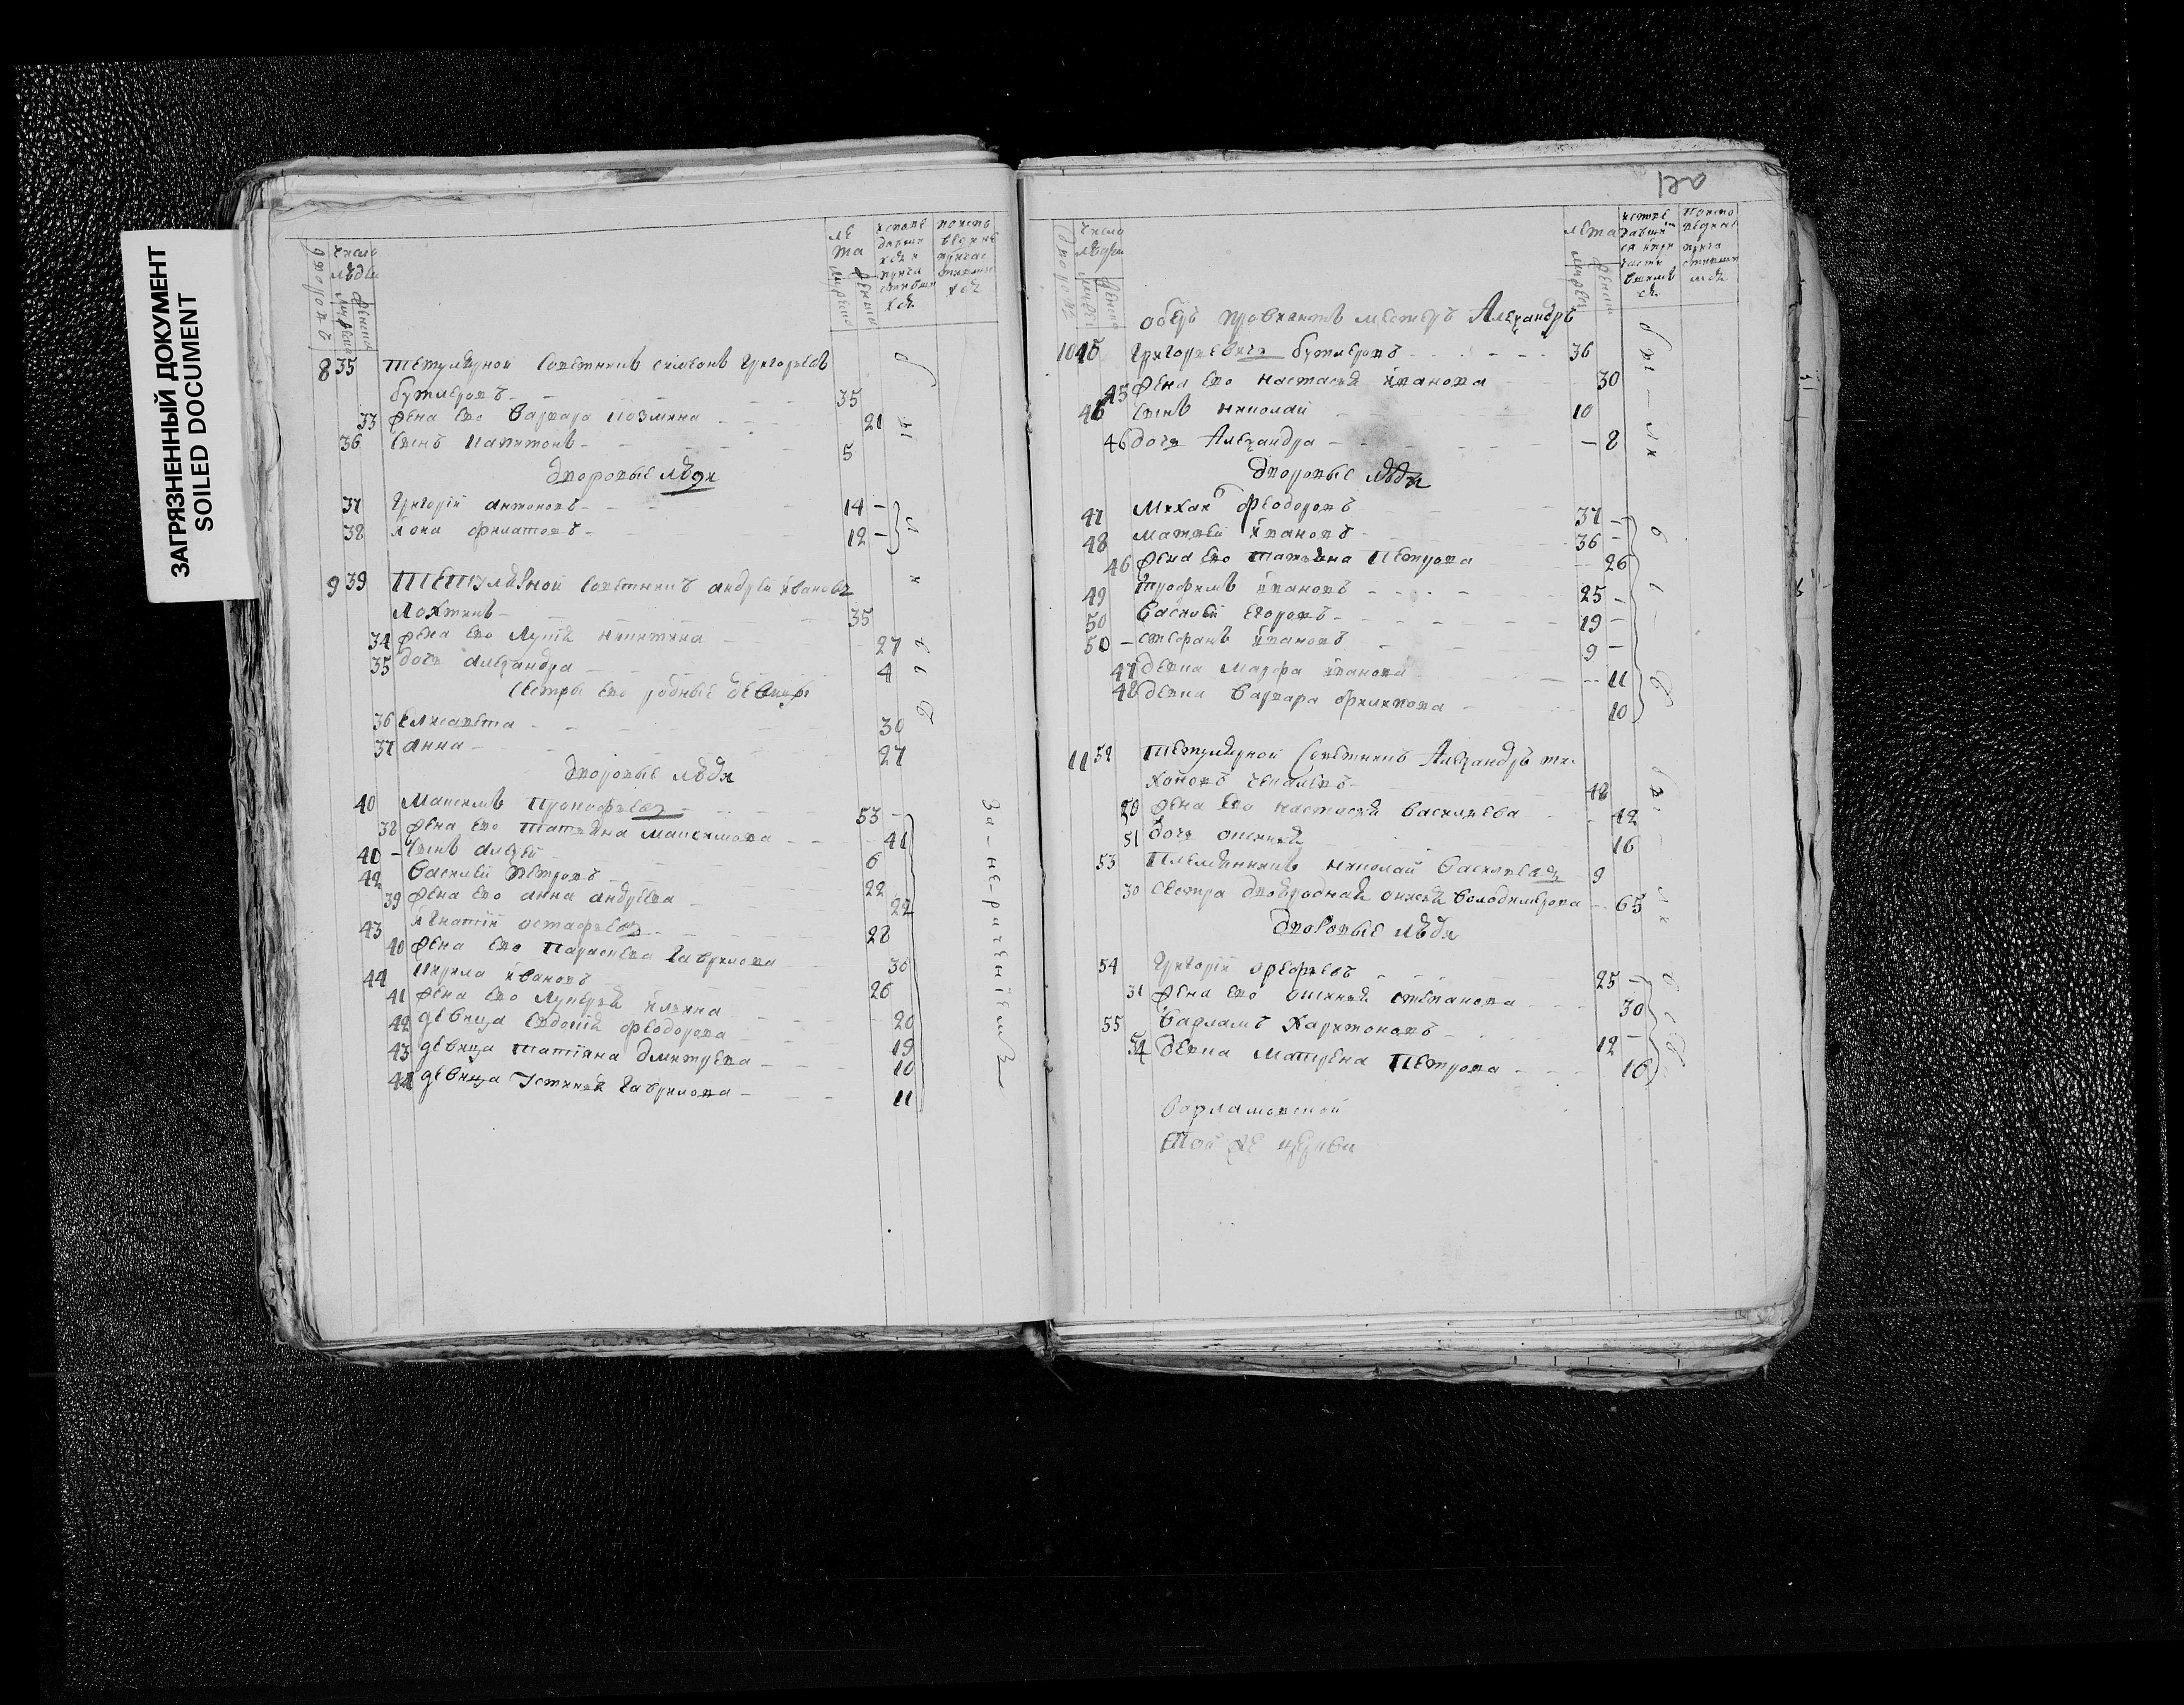 ЗАГРЯЗНЕННЫЙ ДОКУМЕНТ
SOILED DOCUMENT
число
8 35 Тетулярной советникъ Симеонъ Григорьевъ
бутлеровъ 35
33 жена ево варвара козмина 21
36 сынъ капитонъ 5
дворовые люди
37 Григорій антоновъ 14
38 іона филатовъ 12
9 39 Тетулярной советникъ андрей иванов
лохтинъ 35
34 жена ево никитина 27
35 дочь александра 4
сестры ево родные девицы
36 елисавета 30
37 анна 27
дворовые люди
40 Максимъ Прокофьев 53
38 жена ево татьяна максимова 41
41 сынъ алексей 6
42 василей петровъ 22
39 жена ево анна андреева 22
43 игнатій остафьев 28
40 жена ево параскева гаврилова 30
44 кирила ивановъ 26
41 жена ево ильина 20
42 девица евдокія феодорова 19
43 девица татіяна дмитрева 10
44 девица устинья гаврилова 11
за-не-рачениемъ
120
лета
оберъ провиантъ местеръ Александръ
10 45 григорьевичь бутлеровъ 36
45 жена ево настасья иванова 30
46 сынъ николай 10
46 дочь Александра 8
дворовые люди
47 михаи феодоровъ 37
48 матвей ивановъ 36
46 жена ево татьяна петрова 26
49 трофимъ ивановъ 25
50 василей егоровъ 19
50 стефанъ ивановъ 9
47 девка марфа иванова 11
48 девка варвара филипова 10
11 52 Тетулярной советникъ Александръ ти-
хоновъ 42
жена ево настасья васильева 42
51 дочь 16
53 племянникъ николай васильев 9
30 сестра двоюродная володимерова 65
дворовые люди
54 григорій 25
31 жена ево степанова 30
55 варламъ харитоновъ 12
54 девка матрена петрова 16
варламовской
той же церкви